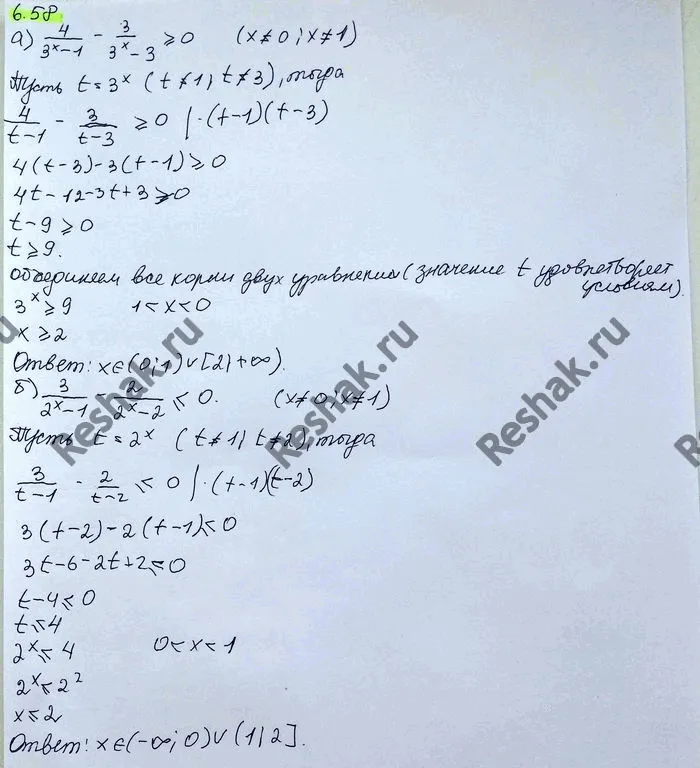 6.58
а) 4/(3^x-1) - 3/(3^x-3) ⩾ 0 (x≠0; x≠1)
Пусть t = 3^x (t≠1; t≠3), тогда
4/(t-1) - 3/(t-3) ⩾ 0 | ·(t-1)(t-3)
4(t-3)-3(t-1) ⩾ 0
4t-12-3t+3 ⩾ 0
t-9 ⩾ 0
t ⩾ 9.
Объединяем все корни двух уравнений (значение t удовлетворяет условиям).
3^x ⩾ 9 1<x<0
x ⩾ 2
Ответ: x∈(0;1)∪[2;+∞).
б) 3/(2^x-1) - 2/(2^x-2) ⩽ 0. (x≠0; x≠1)
Пусть t = 2^x (t≠1; t≠2), тогда
3/(t-1) - 2/(t-2) ⩽ 0 | ·(t-1)(t-2)
3(t-2)-2(t-1) ⩽ 0
3t-6-2t+2 ⩽ 0
t-4 ⩽ 0
t ⩽ 4
2^x ⩽ 4 0<x<1
2^x ⩽ 2^2
x ⩽ 2
Ответ: x∈(-∞;0)∪(1;2].
Reshak.ru
Reshak.ru
Reshak.ru